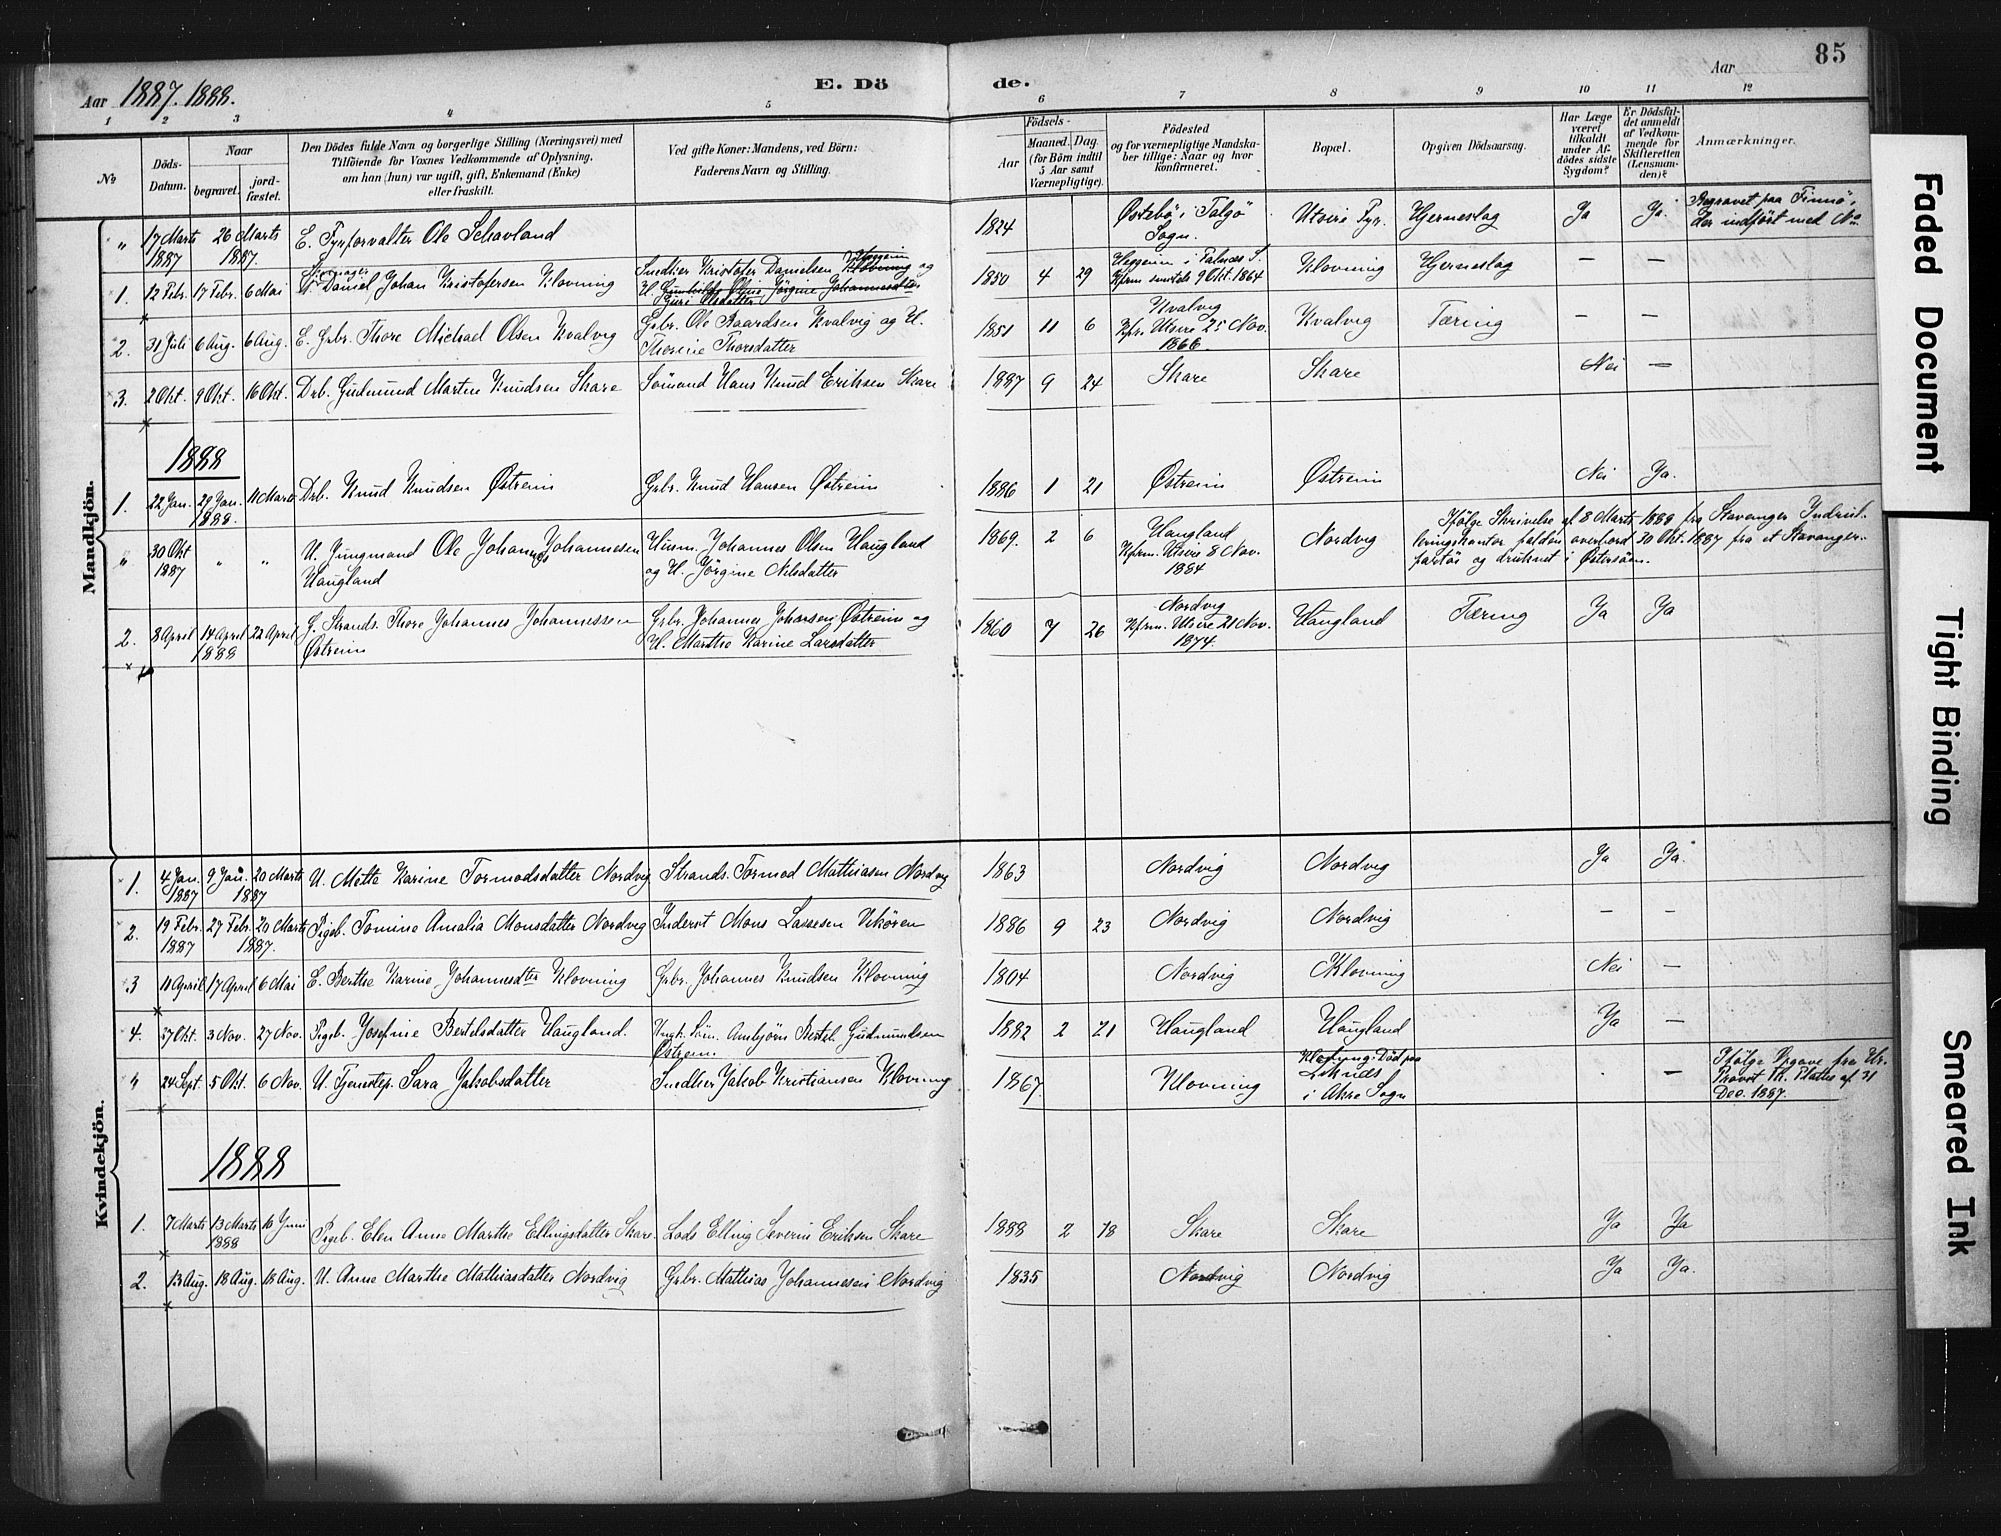 Aar 1887. 1888.
E. Döde.
Aar
85
1 2 3 4 5 6 7 8 9 10 11 12
No
Döds-Datum.
Naar
begravet.
jord-fæstet.
Den Dödes fulde Navn og borgerlige Stilling (Næringsvei) med
Tilföiende for Voxnes Vedkommende af Oplysning,
om han (hun) var ugift, gift, Enkemand (Enke)
eller fraskilt.
Ved gifte Koner: Mandens, ved Börn:
Faderens Navn og Stilling.
Födsels-
Aar
Maaned. Dag
(for Börn indtil
5 Aar samt
Værnepligtige).
Födested
og for værnepligtige Mandska-
ber tillige: Naar og hvor
konfirmeret.
Bopæl.
Opgiven Dödsaarsag.
Har Læge
været
tilkaldt
under Af-
dödes sidste
Sygdom?
Er Dödsfal-
det anmeldt
af Vedkom-
mende for
Skifteretten
(Lensman-
den)?
Anmærkninger.
Mandkjön.
" 17 Marts 1887 26 Marts 1887. E. Fyrforvalter Ole Schavland 1824 Østebö i Talgö Sogn. Utsire Fyr. Hjerneslag Ja Ja. Begravet paa Finnö, der indført med No
1. 12 Febr. 17 Febr. 6 Mai Daniel Johan Kristofersen Klovning Snedker Kristofer Danielsen Klovning og
H. Jörgine Johannesdatter
Guri Olsdatter 1850 4 29 Heggeim i Falnæs S. 9 Okt. 1864 Klovning Hjerneslag — —
2. 31 Juli 6 Aug. 6 Aug. E. Grbr. Thore Michael Olsen Kvalvig Grbr. Ole Baardsen Kvalvig og H.
Thorine Thorsdatter 1851 11 6 Kvalvig
Kfr. Utsire 25 Nov. 1866 Kvalvig Tæring — —
3. 2 Okt. 9 Okt. 16 Okt. Drb. Gudmund Martin Knudsen Skare Sömand Hans Knud Eriksen Skare 1887 9 24 Skare Skare Nei —
1888
1. 22 Jan. 29 Jan. 1888. 11 Marts Drb. Knud Knudsen Østreim Grbr. Knud Hansen Østreim 1886 1 21 Østreim Østreim Nei Ja.
" 30 Okt 1887 " " U. Jungmand Ole Johannes Johannesen
Haugland Husm. Johannes Olsen Haugland
og H. Jörgine Nilsdatter 1869. 2 6 Haugland
Kfrm. Utsire 8 Nov. 1884 Nordvig Ifölge Skrivelse af 8 Marts 1888 fra Stavanger Indrul-
leringskontor falden overbord 30 Okt. 1887 fra et Stavanger-
fartöi og druknet i Østersöen.
2. 8 April 14 April 1888 22 April G. Strands. Thore Johannes Johannessen
Østreim Grbr. Johannes Johansen Østreim og
H. Marthe Karine Larsdatter 1860 7 26 Nordvig
Kfrm. Utsire 21 Nov. 1874. Haugland Tæring Ja Ja
Kvindekjön.
1. 4 Jan. 1887 9 Jan. 20 Marts 1887 U. Mette Karine Tormodsdatter Nordvig Strands. Tormod Mathiasen Nordvig 1863 Nordvig Nordvig Ja Ja.
2. 19 Febr. 1887 27 Febr. 20 Marts 1887. Pigeb. Tomine Amalia Monsdatter Nordvig Inderst Mons Lassesen Vikören 1886 9 23 Nordvig Nordvig — —
3 11 April 17 April 6 Mai E. Berthe Karine Johannesdter Klovning Grbr. Johannes Knudsen Klovning 1804 Nordvig Klovning Nei —
4. 27 Okt. 3 Nov. 27 Nov. Pigeb. Josefine Bertelsdatter Haugland. Ambjörn Bertel Gudmundsen
Østreim 1882 2 21 Haugland Haugland Ja —
24 Sept. 5 Okt. 6 Nov. U. Tjenestep. Sara Jakobsdatter Snedker Jakob Kristiansen Klovning 1867. Klovning Klovning. Död paa
i Akre Sogn — Ifölge Opgave fra Hr.
Provst Th. af 31
Dec. 1887.
1888
1. 7 Marts 13 Marts 1888 16 Juni Pigeb. Elen Anne Marthe Ellingsdatter Skare. Lods Elling Severin Eriksen Skare 1888 2 18 Skare Skare Ja Ja
2. 13 Aug. 18 Aug. 18 Aug. U. Anne Marthe Mathiasdatter Nordvig Grbr. Mathias Johannesen Nordvig 1835 Nordvig Nordvig Ja Ja.
Faded Document
Tight Binding
Smeared Ink